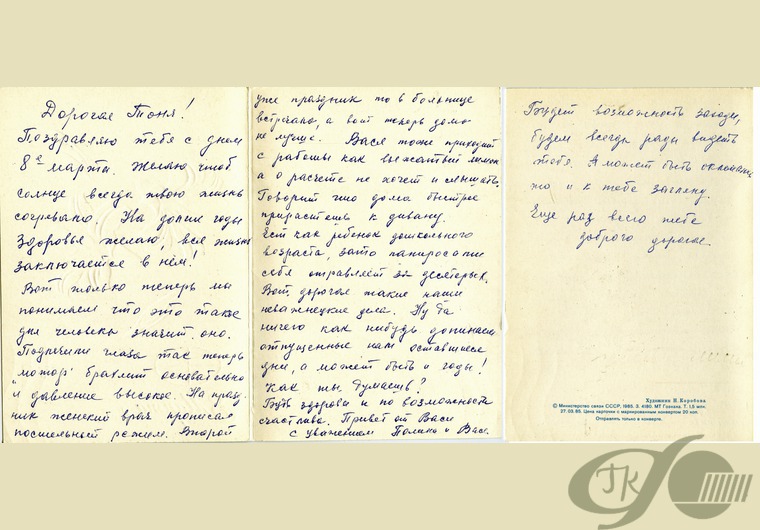 Дорогая Тоня!
Поздравляю тебя с днем
8е марта. Желаю чтоб
солнце всегда твою жизнь
согревало. На долгие годы
здоровья желаю, вся жизнь
заключается в нём!
Вот только теперь мы
понимаем что это такое
для человека значит оно.
Подлечили глаза так теперь
"мотор" барахлит основательно
и давление высокое. На празд
ник женский врач прописал
постельный режим. Второй
уже праздник то в больнице
встречаю, а вот теперь дома
не лучше. Вася тоже приходит
с работы как выжатый лимон
а о расчете не хочет и слышать.
Говорит что дома быстрее
прирастешь к дивану.
Ест как ребенок дошкольного
возраста, зато папиросами
себя отравляет за десятерых.
Вот, дорогая такие наши
неважнецкие дела. Ну да
ничего как нибудь допинаем
отпущенные нам оставшиеся
дни, а может быть и годы!
Как ты думаешь?
Будь здорова и по возможности
счастлива. Привет от Васи
с уважением Полина и Вася.
Будет возможность заходи,
будем всегда рады видеть
тебя. А может быть
то и к тебе загляну.
Еще раз всего тебе
доброго дорогая.
Художник Н. Коробова
© Министерство связи СССР, 1985. З. 4180. МТ Гознака. Т. 1,5 млн.
27.03.85. Цена карточки с маркированным конвертом 20 коп.
Отправлять только в конверте.
ГК